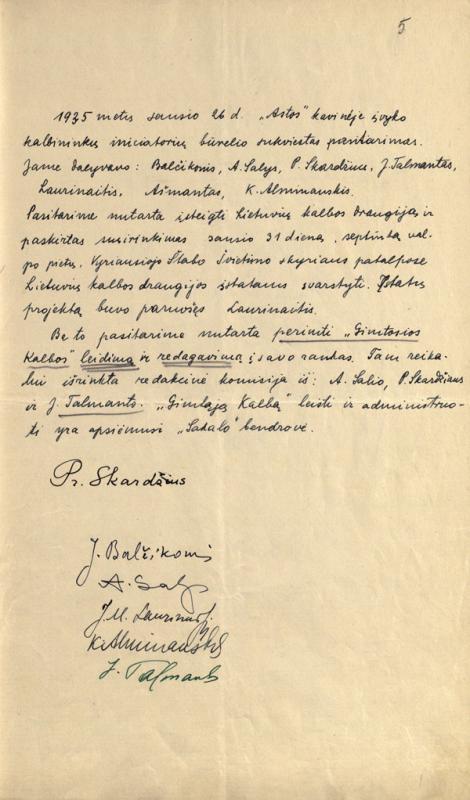 5
1935 metų sausio 26 d. „Astos" kavinėje įvyko
kalbininkų iniciatorių būrelio sukviestas pasitarimas.
Jame dalyvavo: Balčikonis, A. Salys, P. Skardžius, J. Talmantas,
Laurinaitis, Ašmantas, K. Alminauskis.
Pasitarime nutarta įsteigti Lietuvių kalbos draugiją ir
paskirtas susirinkimas sausio 31 dieną, septintą val.
po pietų, Vyriausiojo Štabo Švietimo skyriaus patalpose
Lietuvių kalbos draugijos įstatams svarstyti. Įstatų
projektą buvo paruošęs Laurinaitis.
Be to pasitarime nutarta perimti „Gimtosios
Kalbos" leidimą ir redagavimą į savo rankas. Tam reika-
lui išrinkta redakcinė komisija iš: A. Salio, P. Skardžiaus
ir J. Talmanto. „Gimtąją Kalbą" leisti ir administruo-
ti yra apsiėmusi „Sakalo" bendrovė.
Pr. Skardžius
J. Balčikonis
A. Salys
J. M. Laurinait.
K. Alminauskis
J. Talmant